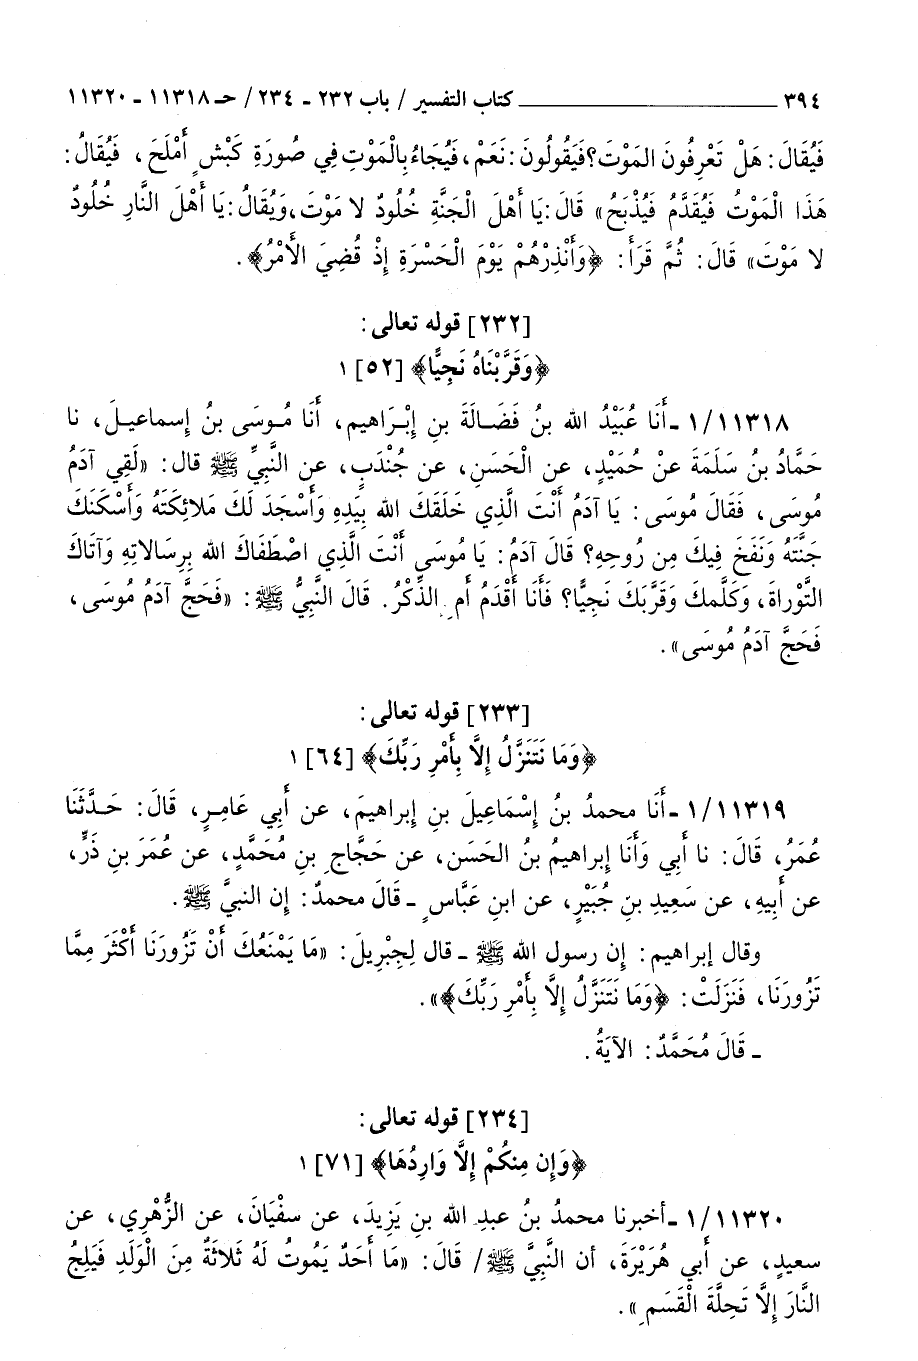 ٣٩٤ ــــــــــــــــــــــــــــــــــــــــ كتاب التفسير / باب ٢٣٢ - ٢٣٤ / حـ ١١٣١٨ - ١١٣٢٠
فَيُقَالَ: هَلْ تَعْرِفُونَ المَوْتَ؟ فَيَقُولُونَ: نَعَمْ، فَيُجَاءُ بِالْمَوْتِ فِي صُورَةِ كَبْشٍ أَمْلَحَ، فَيُقَالُ:
هَذَا الْمَوْتُ فَيُقَدَّمُ فَيُذْبَحُ» قَالَ: يَا أَهْلَ الْجَنَّةِ خُلُودٌ لا مَوْتَ، وَيُقَالُ: يَا أَهْلَ النَّارِ خُلُودٌ
لا مَوْتَ» قَالَ: ثُمَّ قَرَأَ: ﴿وَأَنْذِرْهُمْ يَوْمَ الْحَسْرَةِ إِذْ قُضِيَ الْأَمْرُ﴾.
[٢٣٢] قوله تعالى:
﴿وَقَرَّبْنَاهُ نَجِيًّا﴾ [٥٢] ١
١/١١٣١٨ ـ أَنَا عُبَيْدُ الله بنُ فَضَالَةَ بنِ إِبْرَاهِيم، أَنَا مُوسَى بنُ إِسماعيلَ، نا
حَمَّادُ بنُ سَلَمَةَ عنْ حُمَيْدٍ، عن الْحَسَنِ، عن جُنْدَبٍ، عن النَّبِيِّ ﷺ قال: «لَقِي آدَمُ
مُوسَى، فَقَالَ مُوسَى: يَا آدَمُ أَنْتَ الَّذِي خَلَقَكَ الله بِيَدِهِ وَأَسْجَدَ لَكَ مَلائِكَتَهُ وَأَسْكَنَكَ
جَنَّتَهُ وَنَفَخَ فِيكَ مِن رُوحِهِ؟ قَالَ آدَمُ: يَا مُوسَى أَنْتَ الَّذِي اصْطَفَاكَ الله بِرِسَالاتِهِ وَآتَاكَ
التَّوْراةَ، وَكَلَّمكَ وَقَرَّبَكَ نَجِيًّا؟ فَأَنَا أَقْدَمُ أَمِ الذِّكْرُ. قَالَ النَّبِيُّ ﷺ: «فَحَجَّ آدَمُ مُوسَى،
فَحَجَّ آدَمُ مُوسَى».
[٢٣٣] قوله تعالى:
﴿وَمَا نَتَنَزَّلُ إِلَّا بِأَمْرِ رَبِّكَ﴾ [٦٤] ١
١/١١٣١٩ ـ أَنَا محمدُ بنُ إِسْمَاعيلَ بنِ إِبراهيمَ، عن أَبي عَامِرٍ، قَالَ: حَدَّثَنَا
عُمَرُ، قَالَ: نا أَبي وَأَنَا إِبراهيمُ بنُ الحَسَن، عن حَجَّاجِ بنِ مُحَمَّدٍ، عن عُمَرَ بنِ ذَرٍّ،
عن أَبيهِ، عن سَعِيدِ بنِ جُبَيْرٍ، عن ابنِ عَبَّاسٍ ـ قَالَ محمدٌ: إِن النبيَّ ﷺ.
وقال إبراهيم: إِن رسول الله ﷺ ـ قال لِجِبْرِيلَ: «مَا يَمْنَعُكَ أَنْ تَزُورَنَا أَكْثَرَ مِمَّا
تَزُورَنَا، فَنَزَلَتْ: ﴿وَمَا نَتَنَزَّلُ إِلَّا بِأَمْرِ رَبِّكَ﴾».
ـ قَالَ مُحَمَّدٌ: الآيَةُ.
[٢٣٤] قوله تعالى:
﴿وَإِن مِنكُمْ إِلَّا وَارِدُهَا﴾ [٧١] ١
١/١١٣٢٠ ـ أخبرنا محمدُ بنُ عبدِ الله بنِ يَزِيدَ، عن سفْيَانَ، عن الزُّهْرِي، عن
سعيدٍ، عن أَبي هُرَيْرَةَ، أن النَّبِيَّ ﷺ / قَالَ: «مَا أَحَدٌ يَمُوتُ لَهُ ثَلاثَةٌ مِنَ الْوَلَدِ فَيَلِجُ
النَّارَ إِلَّا تَحِلَّةَ الْقَسَمِ».